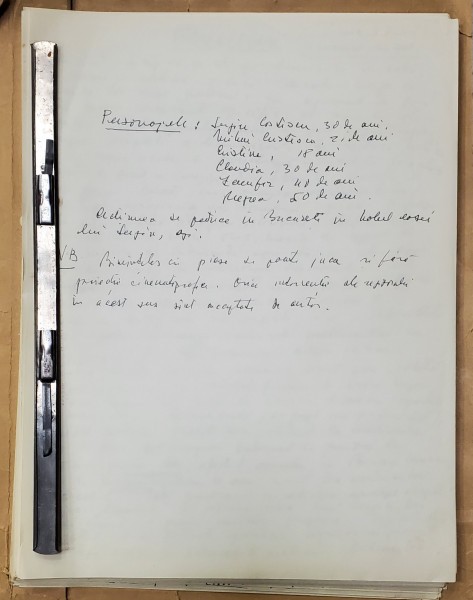 Personajele : Sergiu Costian, 30 de ani.
Mihai Cristian, 21 de ani
Cristina, 18 ani
Claudia, 30 de ani
Zamfir, 40 de ani
50 de ani.
Acțiunea se petrece în București în holul casei
lui Sergiu, azi.
NB Bineînțeles că piesa se poate juca și fără
proiecții cinematografice. Orice intervenții ale regizorului
în acest sens sînt acceptate de autor.